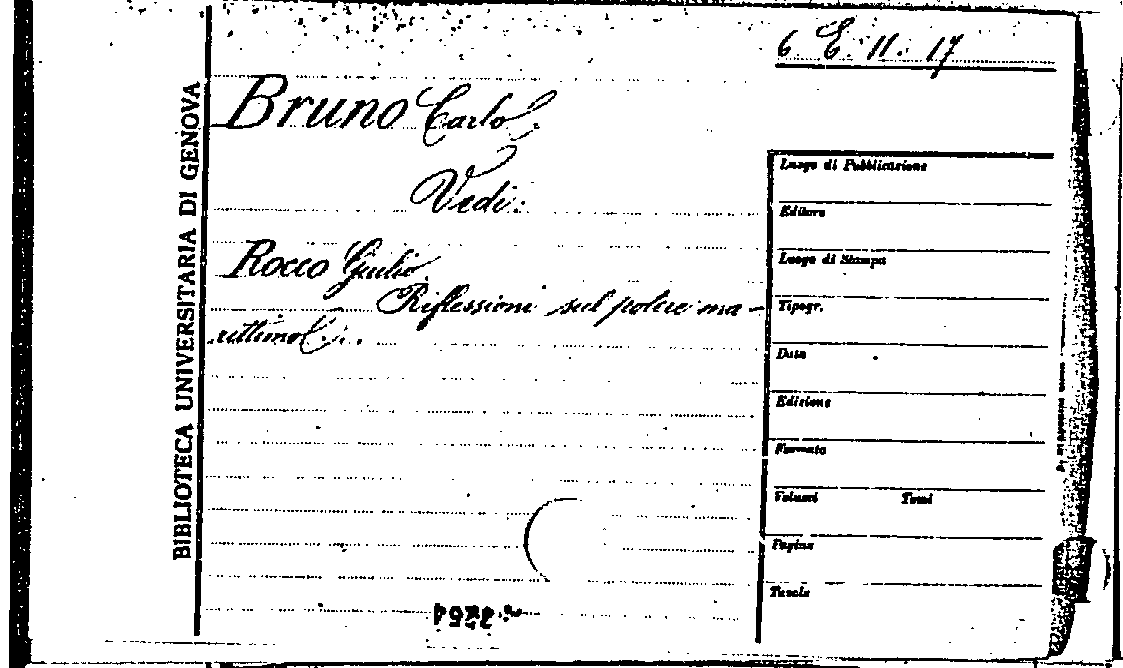 6 E. 11. 17
BIBLIOTECA UNIVERSITARIA DI GENOVA
Bruno Carlo.
Vedi:
Rocco Giulio
Riflessioni sul potere ma-
rittimo
Luogo di Pubblicazione
Editore
Luogo di Stampa
Tipogr.
Data
Edizione
Formato
Volumi Tomi
Pagine
Tavole